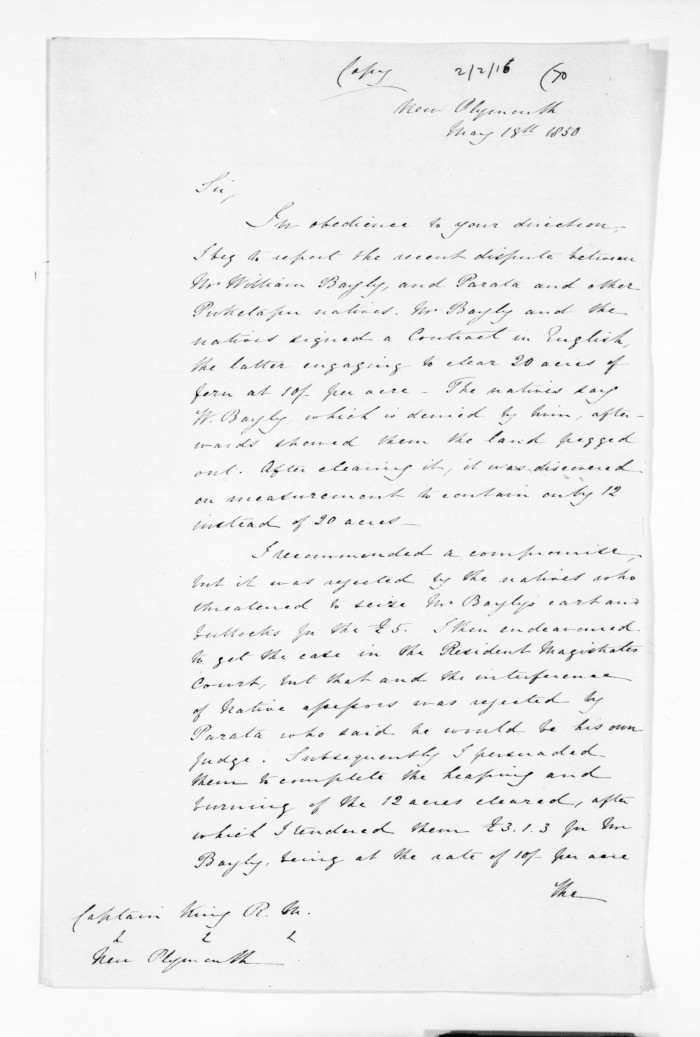 Copy 2/2/16
New Plymouth
May 18th 1850
Sir,
In obedience to your direction,
I beg to report the recent dispute between
Mr William Bayly, and Parata and other
Puketapu natives. Mr Bayly and the
natives signed a Contract in English,
the latter engaging to clear 20 acres of
fern at 10/- per acre - The natives say
W. Bayly, which is denied by him, after-
wards showed them the land pegged
out. After clearing it, it was discovered
on measurement to contain only 12
instead of 20 acres -
I recommended a compromise,
but it was rejected by the natives who
threatened to seize Mr Bayly's cart and
bullocks for the £5. I then endeavoured
to get the case in the Resident Magistrates
Court, but that and the interference
of Native assessors was rejected by
Parata who said he would be his own
judge. Subsequently I persuaded
them to complete the heaping and
burning of the 12 acres cleared, after
which I tendered them £3.1.3 for Mr
Bayly, being at the rate of 10/- per acre
The
Captain King R. M.
New Plymouth